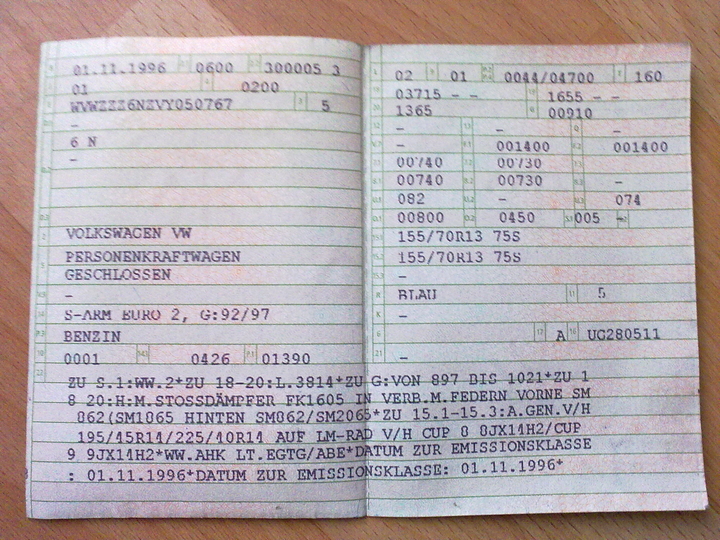 01.11.1996 0600 300005 3
01 0200
WVWZZZ6NZVY050767 5
–
6 N
–
VOLKSWAGEN VW
PERSONENKRAFTWAGEN
GESCHLOSSEN
–
S-ARM EURO 2, G:92/97
BENZIN
0001 0426 01390
02 01 0044/04700 160
03715 – – 1655 – –
1365 00910
– – –
– 001400 001400
00740 00730
00740 00730 –
082 – 074
00800 0450 005 –
155/70R13 75S
155/70R13 75S
–
BLAU 5
–
A UG280511
–
ZU S.1:WW.2*ZU 18-20:L.3814*ZU G:VON 897 BIS 1021*ZU 1
8 20:H:M.STOSSDÄMPFER FK1605 IN VERB.M.FEDERN VORNE SM
062(SM1065 HINTEN SM062/SM2065*ZU 15.1-15.3:A.GEN.V/H
195/45R14/225/40R14 AUF LM-RAD V/H CUP 8 8JX14H2/CUP
9 9JX14H2*WW.AHK LT.EGTG/ABE*DATUM ZUR EMISSIONSKLASSE
: 01.11.1996*DATUM ZUR EMISSIONSKLASSE: 01.11.1996*